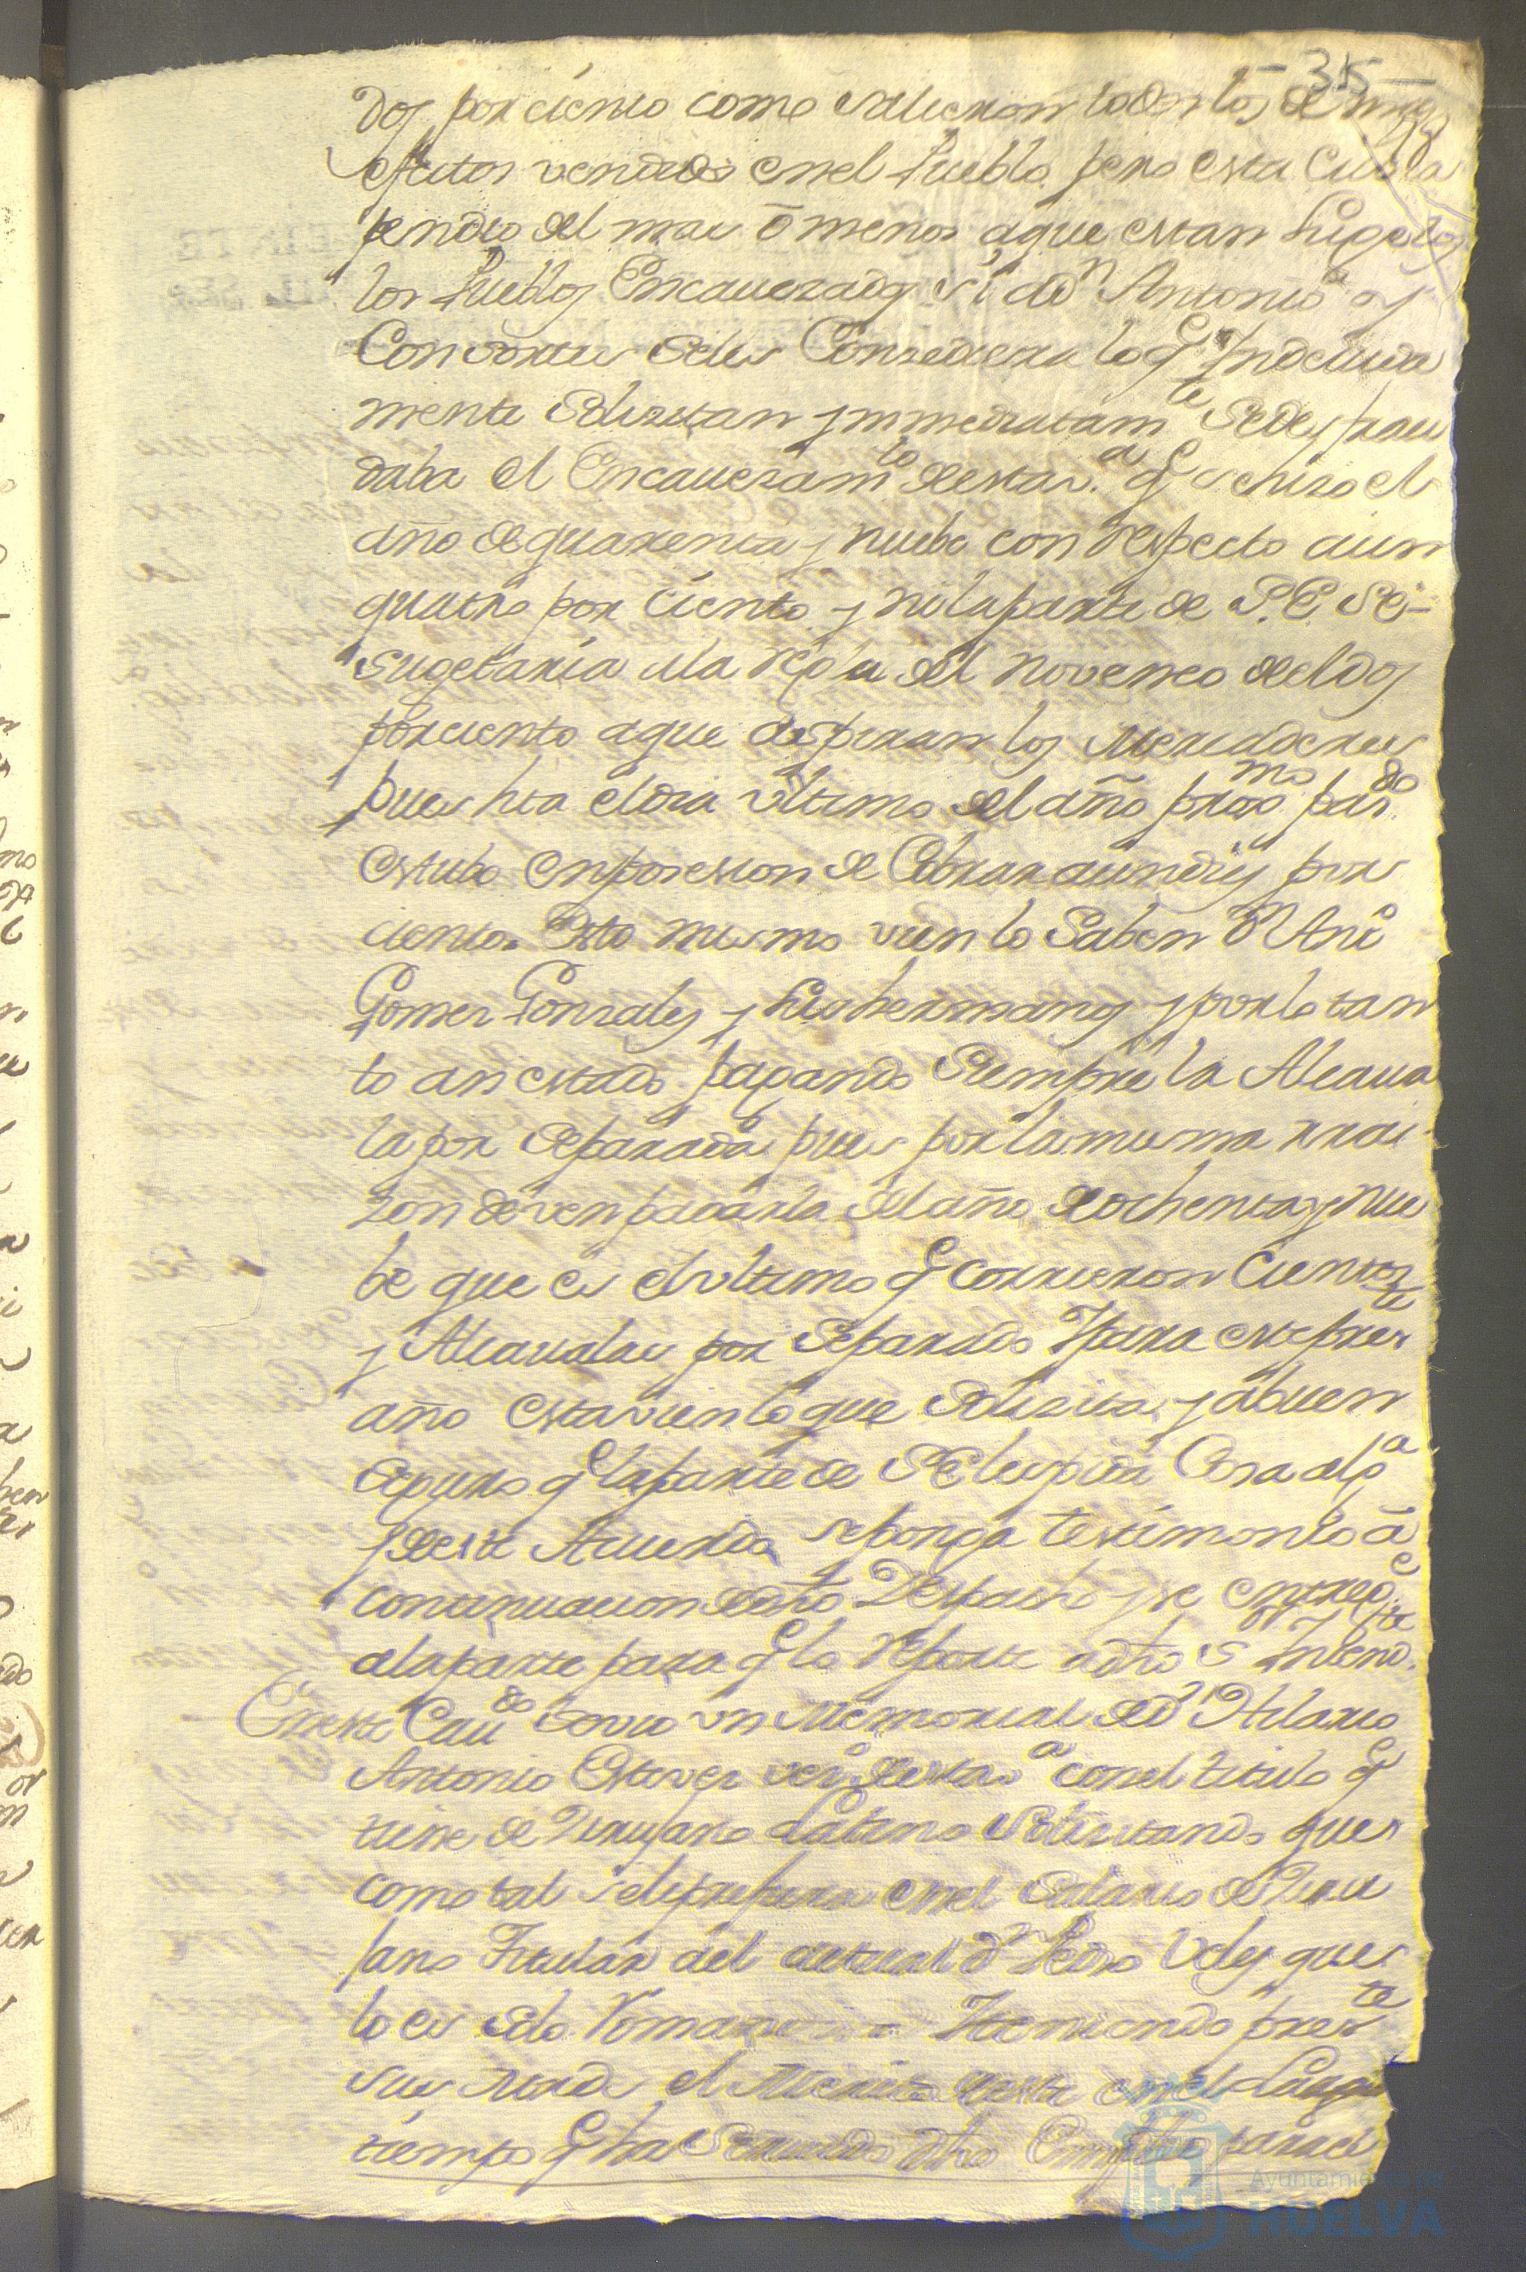 - 35 -
dos por ciento como se hicieron todos los demas
efectos vendidos en el Pueblo pero esta Cuota
pendio del mas ô menos aque estan Sugetos
los Pueblos Encavezados si â Dn Antonio y
Consortes se les Concediera lo q.e Yndevida
mente solizitan ynmediatam.te se des frau
daba el Encavezam.to de esta v.a q.e se hizo el
año de quarenta y nuebe con respecto aun
quatro por ciento y ni la parte de S.E. se
sugetaria a la regla del noveneo del dos
por ciento aque aspiran los Mercaderes
pues hta el dia ultimo del año prox.mo pas.do
estubo en posesion de Cobrar aun diez por
ciento. Esto mismo vien lo Saben Dn Ant.o
Gomez Gonzales y sus hermanos y por lo tan
to an estado pagando siempre la Alcava
la por separada pues por la misma rrai
zon deven pagarla del año de ochenta y nue
be que es el ultimo q.e corrieron Cientos
y Alcavalas por separado Y para este pres.te
año esta vien lo que solizita, y a buen
seguro q.e la parte de S.E. les pida Cosa alg.a
y de este Acuerdo se ponga testimonio â
continuacion de dho Despacho y se entreg.e
a la parte para q.e lo reporte a dho S.or Intend.te
En este Cav.do se vio un Memorial de Dn Hilario
Antonio Estevez vez.o de esta v.a con el titulo q.e
tiene de Zirujano Latino Solizitando que
como tal se le prefiera en el Salario de Ziru
jano Titular del actual Dn Pedro Veles que
lo es solo Romanze = Y teniendo pres.te
sus mrds el Merito de este en el Largo
tiempo q.e ha servido dho Empleo para el
Ayuntamiento de
HUELVA